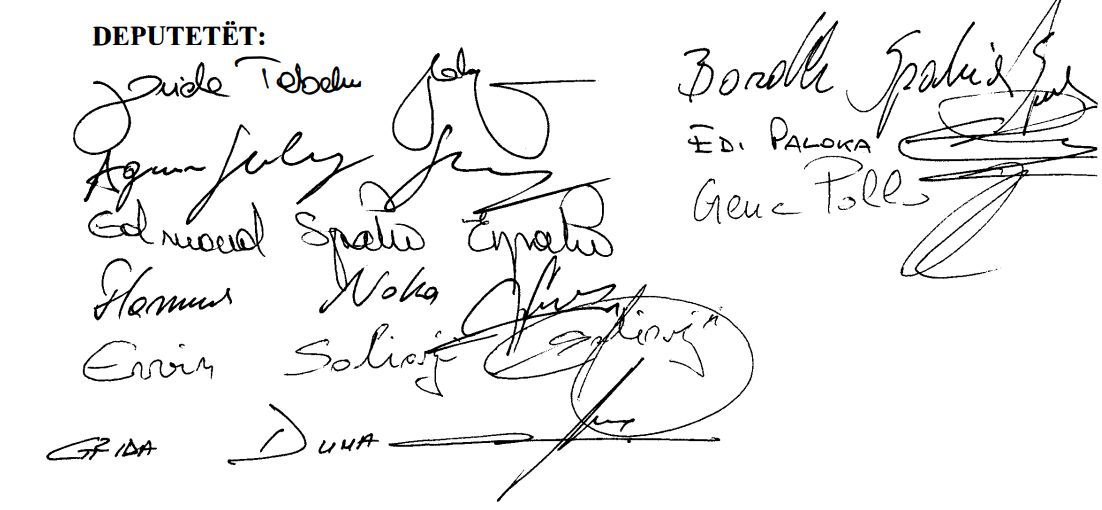 DEPUTETËT:
Jorida Tabaku
Agron
Edmond Spaho ESpaho
Flamur Noka
Ervin Salianji Salianji
GRIDA DUMA
Bardh Spahia
ED. PALOKA
Genc Pollo